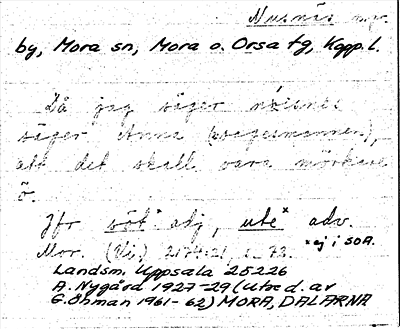 Nusnäs
by, Mora sn, Mora o. Orsa tg, Kopp. l.
Då jag säger
säger Anna (sagesmannen),
att det skall vara mörkare
ö.
Jfr söt* adj, ute* adv.
*ej i SOA.
Mor.
Landsm. Uppsala 25226
A. Nygård 1927-29 (utred. av
G. Öhman 1961-62) MORA, DALARNA